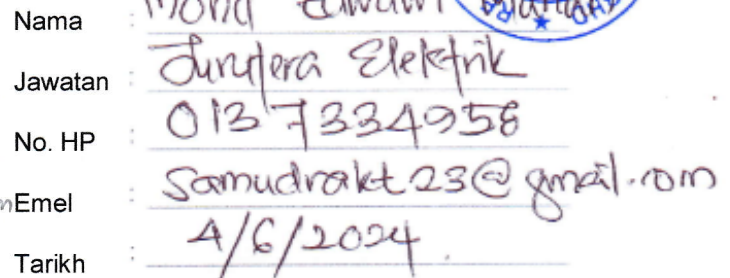 Nama : Mohd
Jawatan : Jurutera Elektrik
No. HP : 013 7334958
Emel : Samudrakt23@gmail.com
Tarikh : 4/6/2024